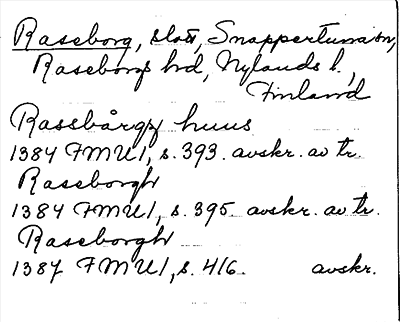 Raseborg, slott, Snappertuna sn,
Raseborgs hd, Nylands l.,
Finland
Rassbårgz huus
1384 FMU 1, s. 393. avskr. av tr.
Raseborgh
1384 FMU 1, s. 395. avskr. av tr.
Raseborgh
1387 FMU 1, s. 416. avskr.